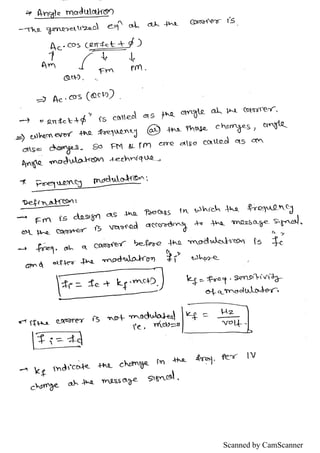 * Angle modulation
- The generalized eqn of the carrier is
Ac.cos (2πfct + φ)
Am θ(t). Fm Pm.
=> Ac.cos (θ(t)).
→ "2πfct + φ" is called as the angle of the carrier.
=> whenever the frequency (or) the phase changes, angle
also changes. So FM & PM are also called as an
Angle modulation technique.
* Frequency modulation:
Definition:
→ Fm is design as the process in which the frequency
of the carrier is varied according to the message signal.
→ freq. of a carrier before the modulation is "fc"
and after the modulation "fi" where
fi = fc + kf.m(t). kf = freq. sensitivity
of a modulator.
→ If the carrier is not modulated
i.e. m(t)=0 kf = Hz/volt.
fi = fc
→ kf indicate the change in the freq. per 1V
change of the message signal.
Scanned by CamScanner